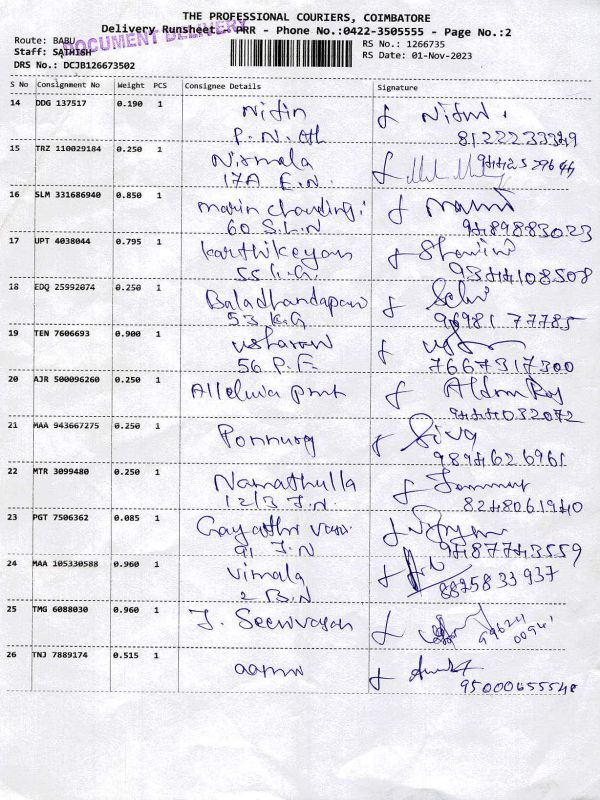 THE PROFESSIONAL COURIERS, COIMBATORE
Delivery Runsheet - PRR - Phone No.:0422-3505555 - Page No.:2
DOCUMENT DELIVERY
Route: BABU
RS No.: 1266735
Staff: SATHISH
RS Date: 01-Nov-2023
DRS No.: DCJB126673502
S No Consignment No Weight PCS Consignee Details Signature
14 DDG 137517 0.190 1 Nitin
P.N. 8122233349
15 TRZ 110029184 0.250 1 Nirmala
17A E.N. 9442529644
16 SLM 331686940 0.850 1
60 S.L.N 9489883023
17 UPT 4038044 0.795 1 Karthikeyan
55 9344108508
18 EDQ 25992074 0.250 1 Baladhandapani Selvi
53 K.G 96981 77785
19 TEN 7606693 0.900 1
56 P.F. 7667317300
20 AJR 500096260 0.250 1 Alleluia
9444032072
21 MAA 943667275 0.250 1 Ponnuraj Siva
9894626961
22 MTR 3099480 0.250 1 Namathulla
12/3 J.N. 8248061940
23 PGT 7506362 0.085 1 Gayathri
91 J.N 9487743559
24 MAA 105330588 0.960 1 Vimala
2 B.N 8875833937
25 TMG 6088030 0.960 1 J. Seenivasan
26 TNJ 7889174 0.515 1